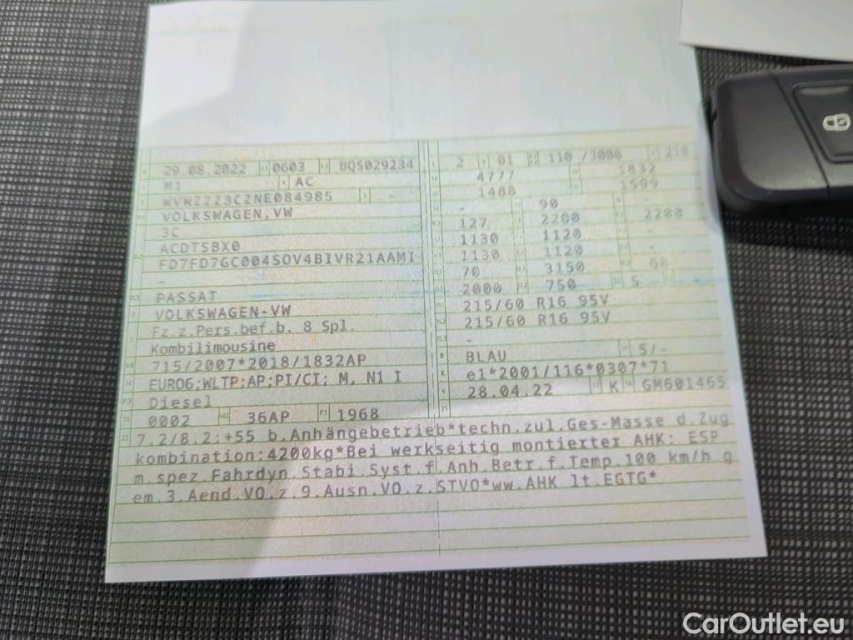 29.08.2022 0603 BQS029234
M1 AC
WVWZZZ3CZNE084985 -
VOLKSWAGEN,VW
3C
ACDTSBX0
FD7FD7GC004SOV4BIVR21AAMI
-
PASSAT
VOLKSWAGEN-VW
Fz.z.Pers.bef.b. 8 Spl.
Kombilimousine
715/2007*2018/1832AP
EURO6;WLTP;AP;PI/CI; M, N1 I
Diesel
0002 36AP 1968
2 01 110 /3000
4777 1832
1488 1599
- 90 -
127 2200 2200
1130 1120 -
1130 1120 -
70 3150 60
2000 750 5
215/60 R16 95V
215/60 R16 95V
-
BLAU 5/-
e1*2001/116*0307*71
28.04.22 K GM601465
7.2/8.2:+55 b.Anhängebetrieb*techn.zul.Ges-Masse d.Zug
kombination:4200kg*Bei werkseitig montierter AHK: ESP
m.spez.Fahrdyn.Stabi.Syst.f.Anh.Betr.f.Temp.100 km/h g
em.3.Aend.VO.z.9.Ausn.VO.z.STVO*ww.AHK lt.EGTG*
CarOutlet.eu